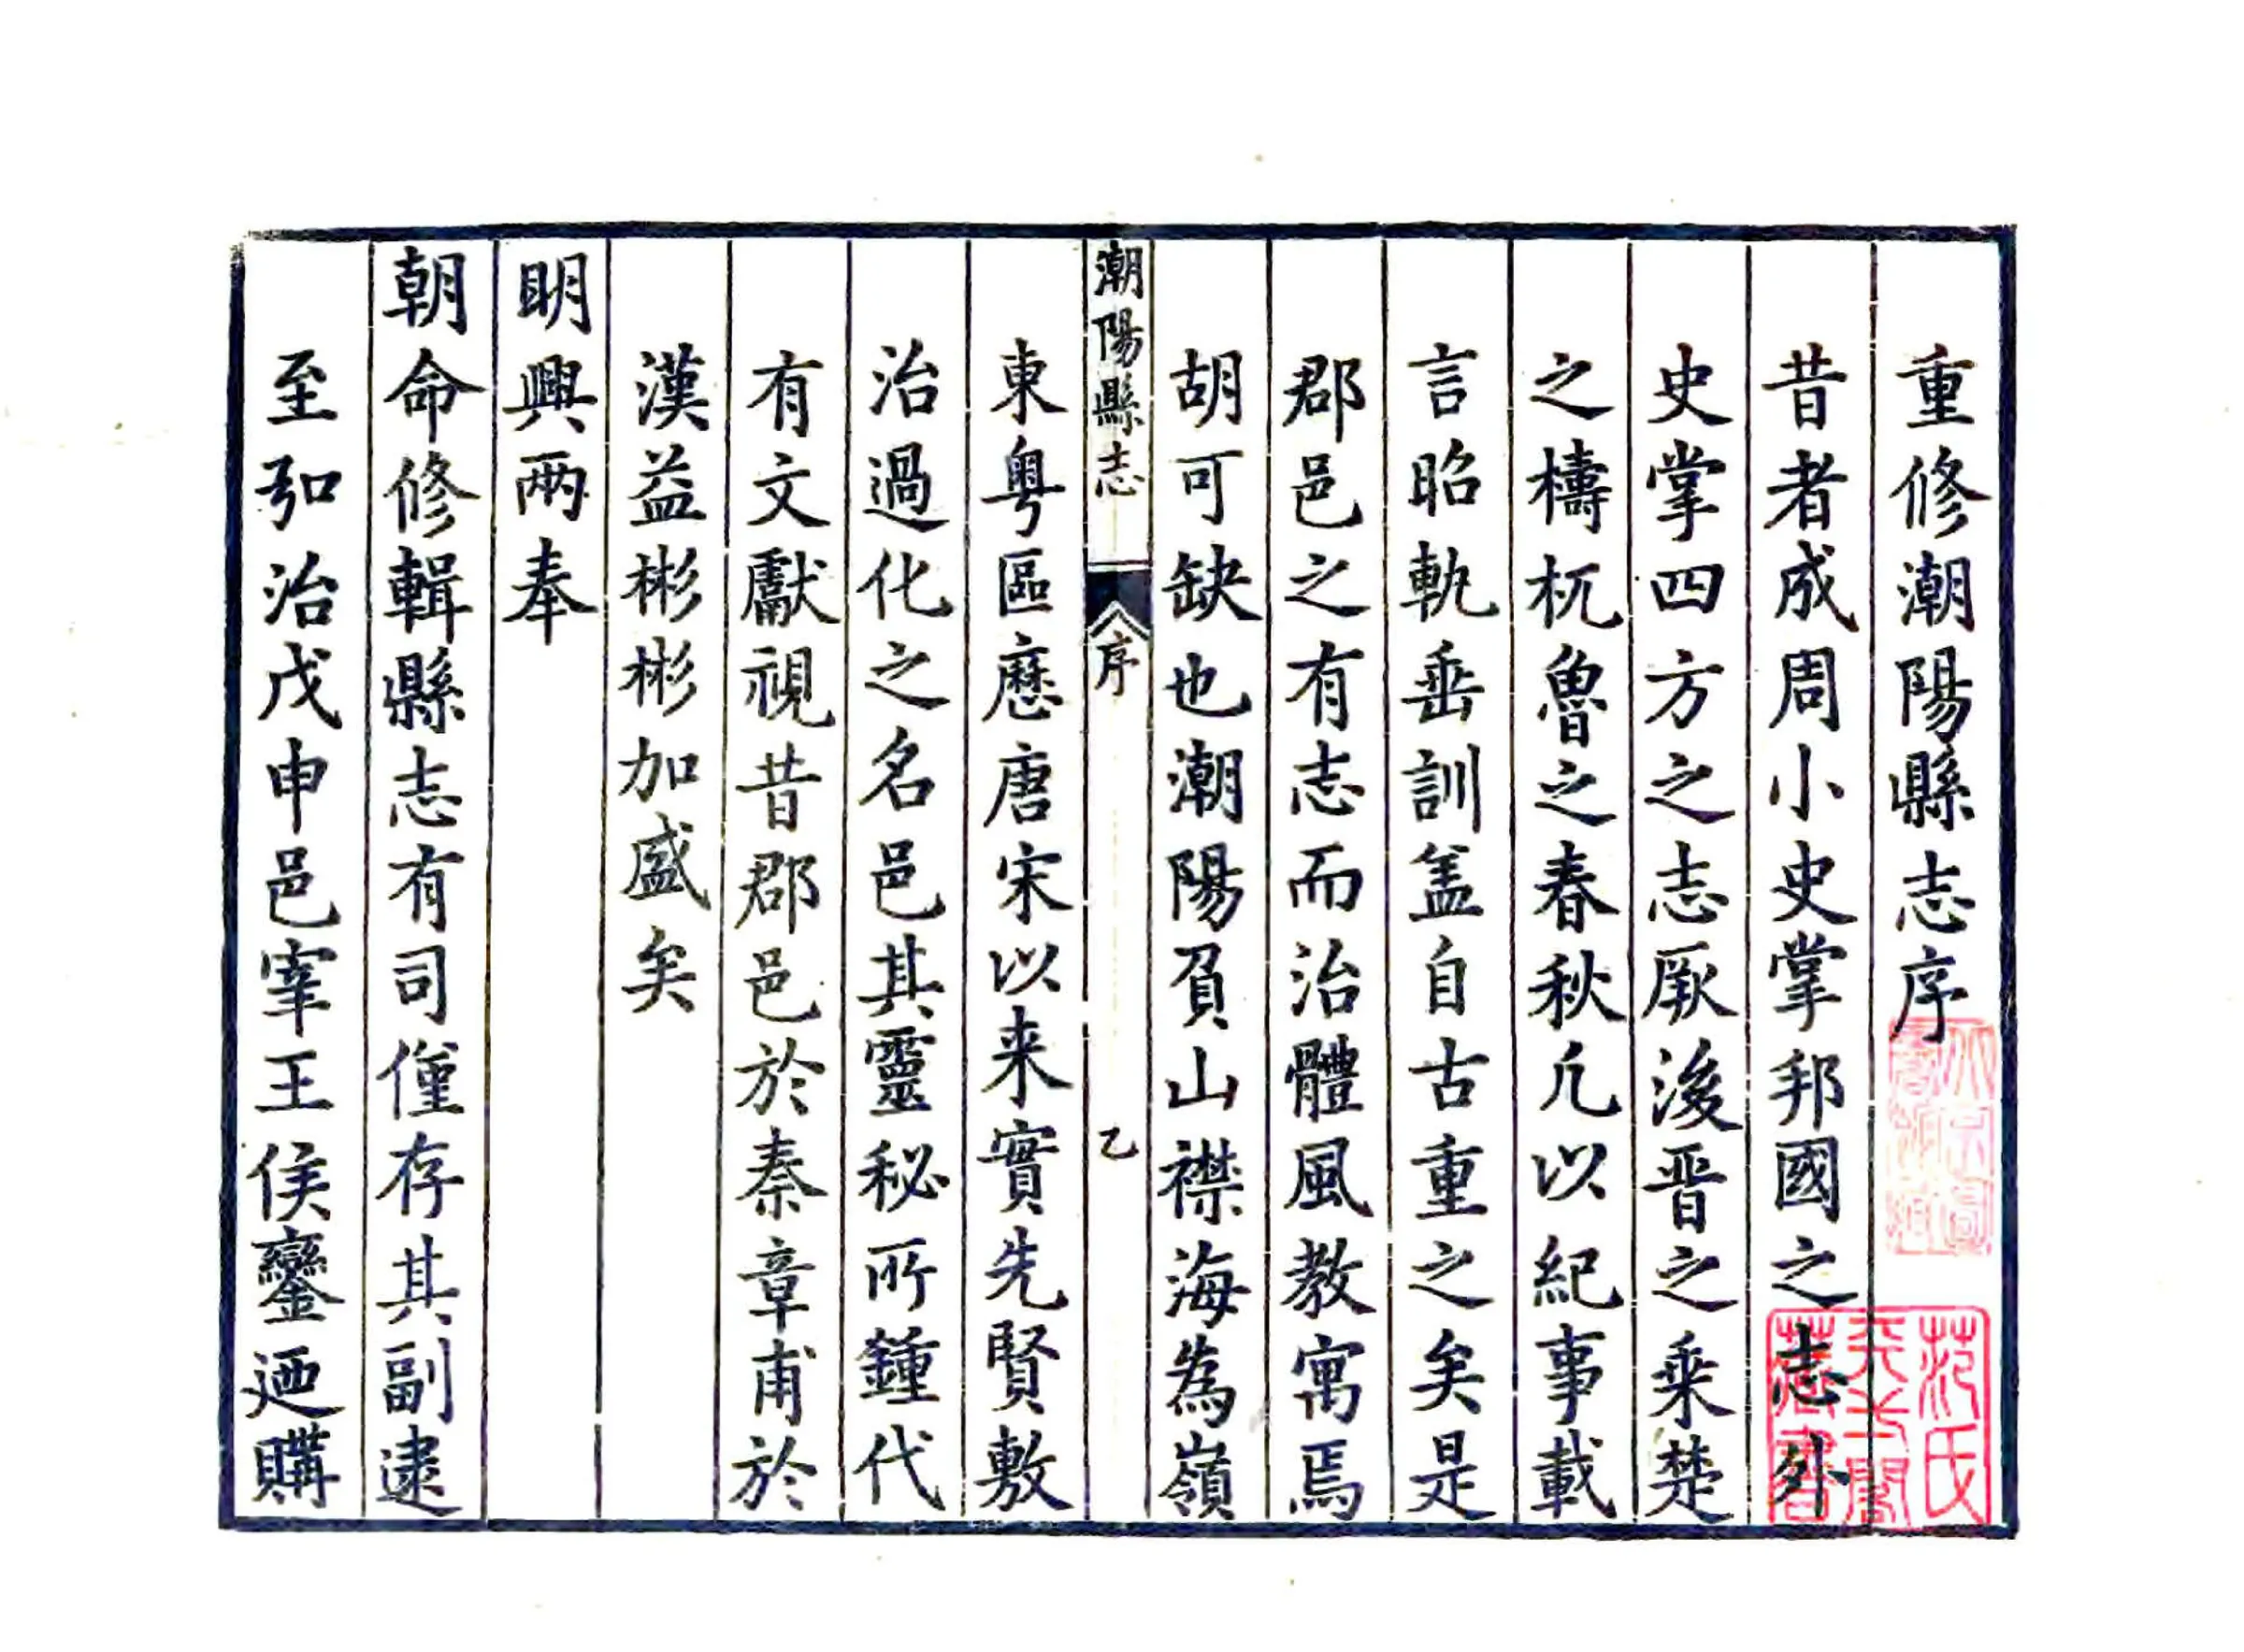 重修潮陽縣志序
昔者成周小史掌邦國之志外
史掌四方之志厥後晋之乘楚
之檮杌魯之春秋凢以紀事載
言昭軌垂訓盖自古重之矣是
郡邑之有志而治體風教寓焉
胡可缺也潮陽負山襟海為嶺
潮陽縣志
序
乙
東粤區歷唐宋以来實先賢敷
治過化之名邑其靈秘所鍾代
有文獻視昔郡邑於秦章甫於
漢益彬彬加盛矣
明興兩奉
朝命修輯縣志有司僅存其副逮
至弘治戊申邑宰王侯鑾廼購
范氏
天一閣
藏書